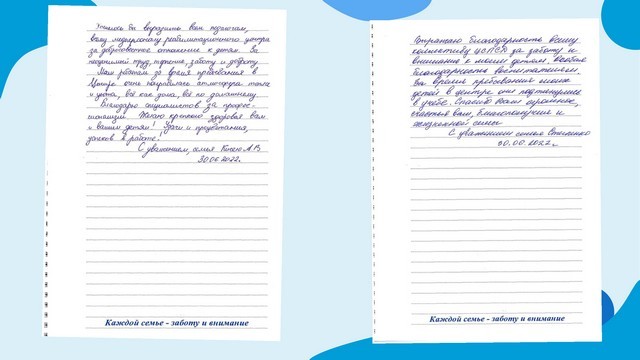 Хотелось бы выразить Вам, педагогам,
всему медперсоналу реабилитационного центра
за добросовестное отношение к детям. За
труд, терпение, заботу и доброту.
Моим ребятам во время пребывания в
Центре очень понравилась атмосфера тепла
и уюта, всё как дома, всё по домашнему.
Благодарю специалистов за профес-
сионализм. Желаю крепкого здоровья вам
и вашим детям! Удачи и процветания,
успехов в работе.
С уважением, семья
30.06.2022г.
Каждой семье - заботу и внимание
Выражаю благодарность всему
коллективу ЦСПСД за заботу и
внимание к моим детям. Особая
благодарность воспитателям.
За время пребывания моих
детей в центре они подтянулись
в учебе. Спасибо Вам огромное,
счастья вам, благополучия и
жизненной силы
С уважением семья
30.06.2022г.
Каждой семье - заботу и внимание